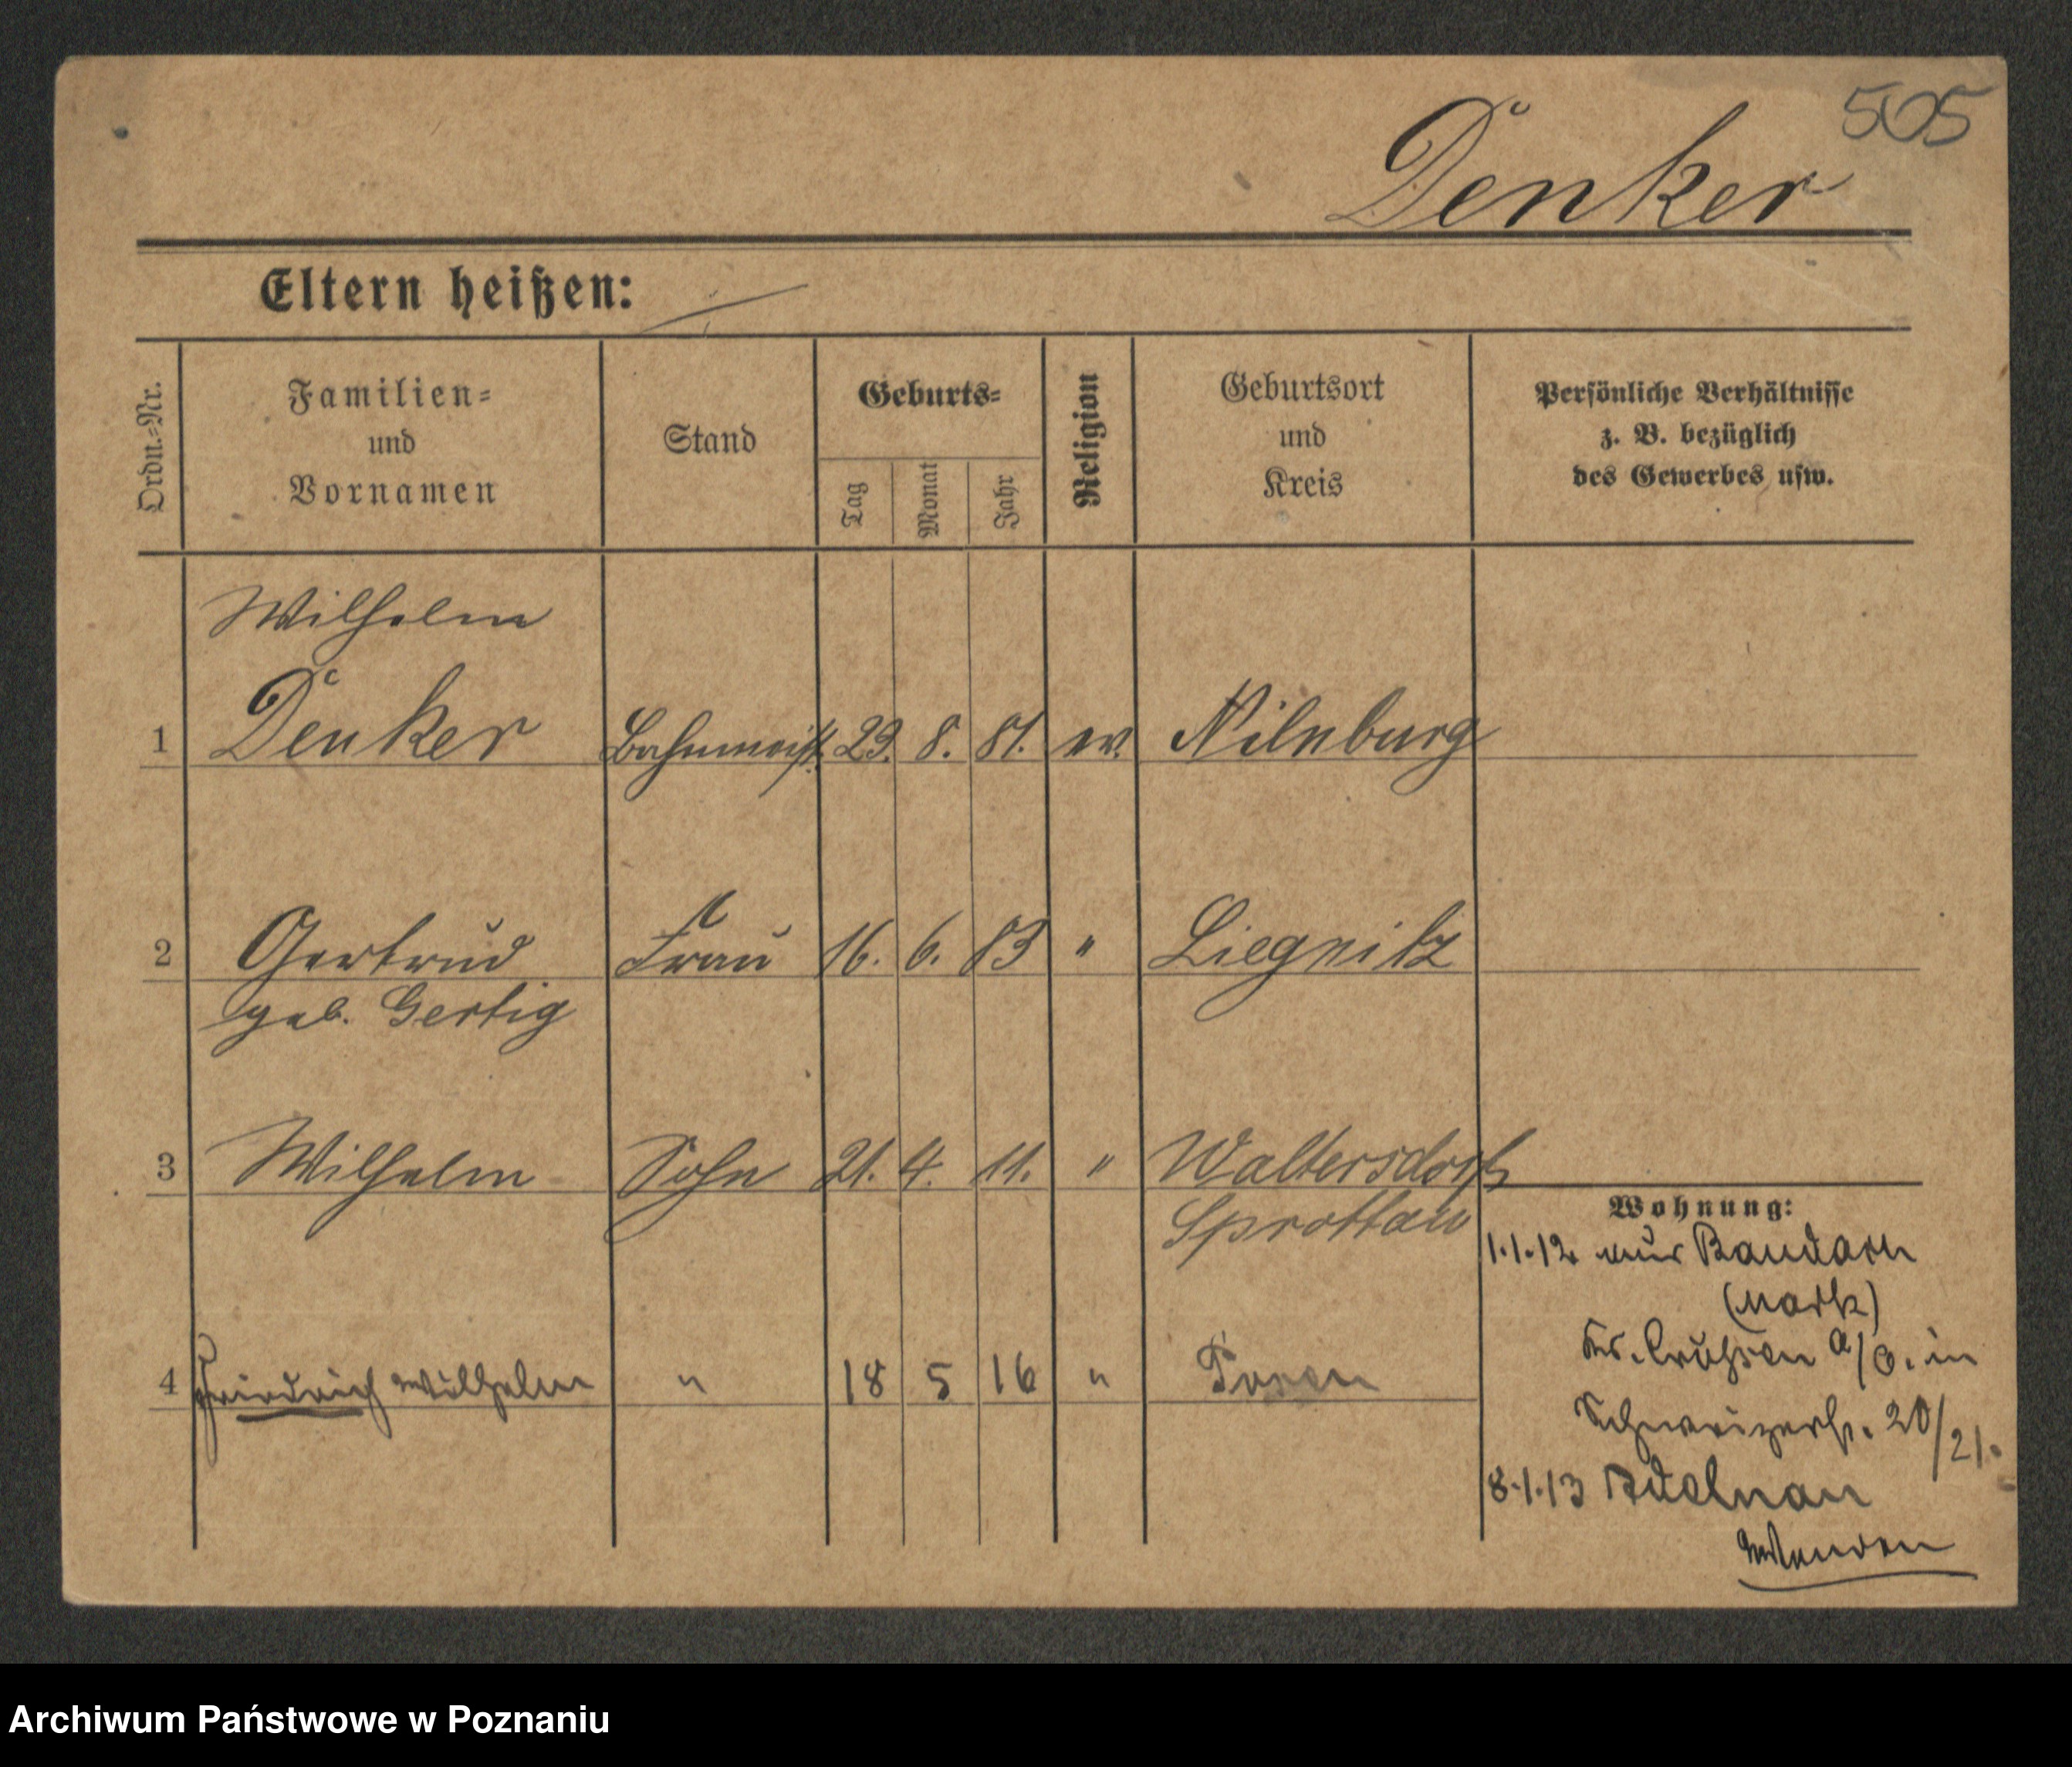 505
Denker
Eltern heißen: /
Ordn.-Nr.
Familien-
und
Vornamen
Stand
Geburts-
Tag
Monat
Jahr
Religion
Geburtsort
und
Kreis
Persönliche Verhältnisse
z. B. bezüglich
des Gewerbes usw.
Wilhelm
1 Denker Bahnmeist. 23. 8. 81. ev. Nilnburg
2 Gertrud Frau 16. 6. 83 " Liegnitz
geb. Gertig
3 Wilhelm Sohn 21. 4. 11. " Waltersdorf
Sprottau
4 Friedrich Wilhelm " 18 5 16 " Posen
Wohnung:
1.1.12 aus
(Mark)
Kr. Crossen a/O. in
Schweizerst. 20/21.
8.1.13 Adelnau